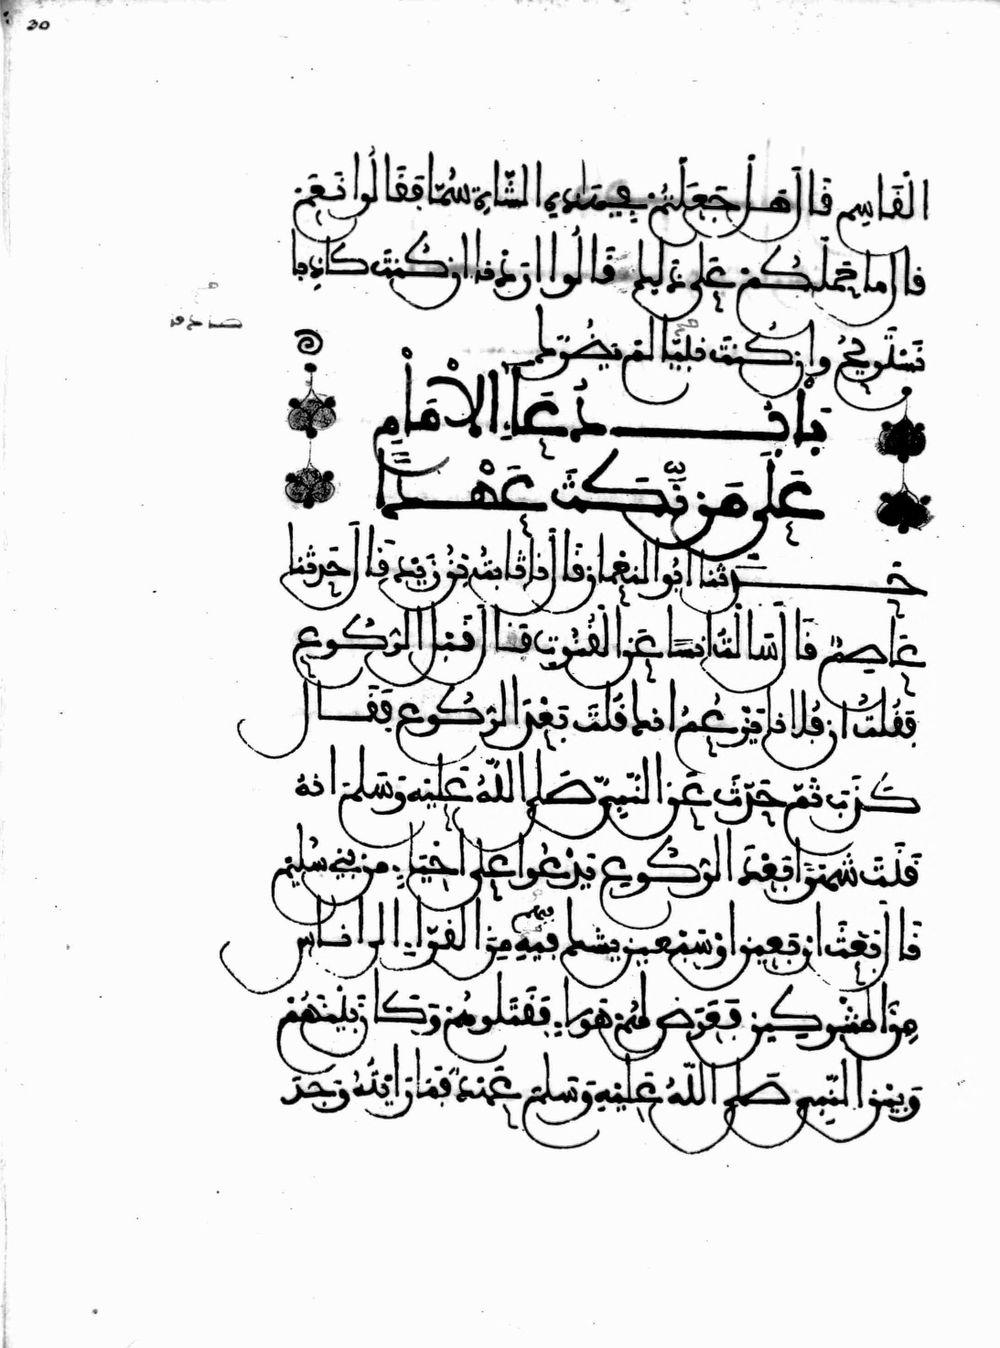 30
الْقَاسِم قَالَ هَلْ جَعَلْتُمْ فِي هَذِهِ الشَّاةِ سُمًّا فَقَالُوا نَعَمْ
قال ما حَمَلَكُمْ عَلَى ذلك قَالُوا اردنا ان كُنتَ كاذبا
نَسْتَرِيحُ وان كُنتَ نبيّا لم يضُرّك
بَابُ دُعَاءِ الْإمَامِ
عَلَى مَن نَّكَثَ عَهْداً
حَدّثنا ابُو النعْمان قَالَ نا ثابتُ بْنُ يَزِيدَ قَالَ حَدثنا
عَاصِمٌ قَالَ سَالْتُ انَسًا عَنِ الْقُنُوتِ قَالَ قَبْلَ الرُّكُوع
فَقُلْتُ ان فُلانا يَزْعُمُ انك قُلتَ بَعْدَ الرُّكُوع فَقَال
كَذَبَ ثُمّ حَدّثَ عَنِ النَّبِيّ صَلى اللّهُ عَلَيْهِ وَسَلم انهُ
قَنَتَ شَهْرًا بَعْدَ الرُّكُوعِ يَدْعُوا على احْيَاءٍ من بَنِي سُلَيْم
قَالَ بَعَثَ ارْبَعِينَ اوْ سَبْعِينَ يشك فِيهِ مِنَ القُرّاءِ الى اناس
فيهم
مِنَ المُشْرِكِينَ فَعَرَضَ لهُمْ هَؤلاءِ فَقَتَلُوهُمْ وَكَانَ بَيْنَهُمْ
وَبَيْنَ النَّبِي صَلى اللّهُ عَلَيْهِ وَسَلمَ عَهْدٌ فَمَا رَأيْتُهُ وَجَدَ